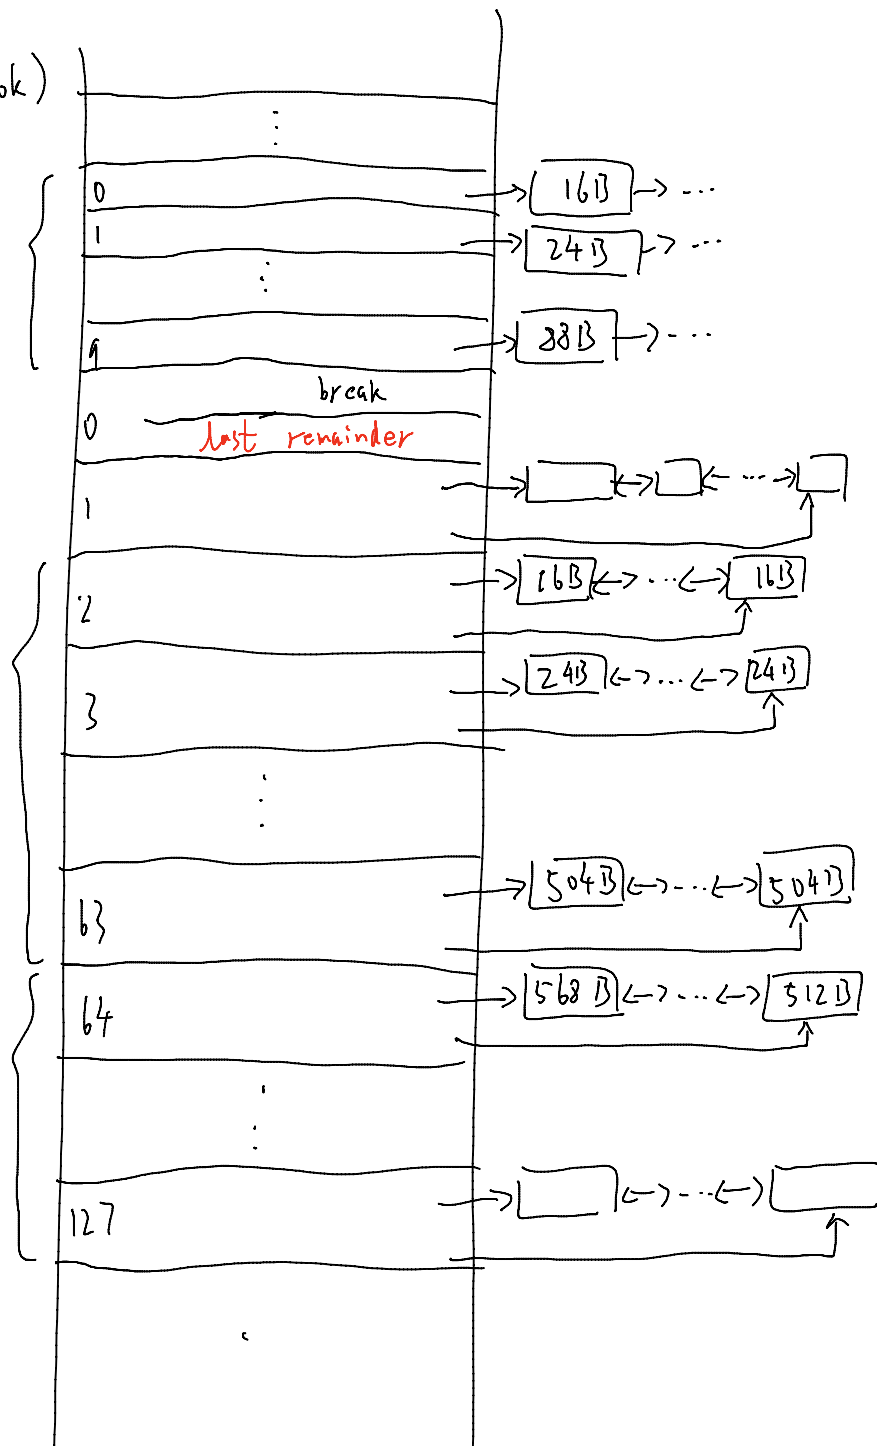 ok)
0 16B ...
1 24B ...
9 88B ...
break
0 last remainder
1 ...
2 16B ... 16B
3 24B ... 24B
63 504B ... 504B
64 568B ... 512B
127 ...